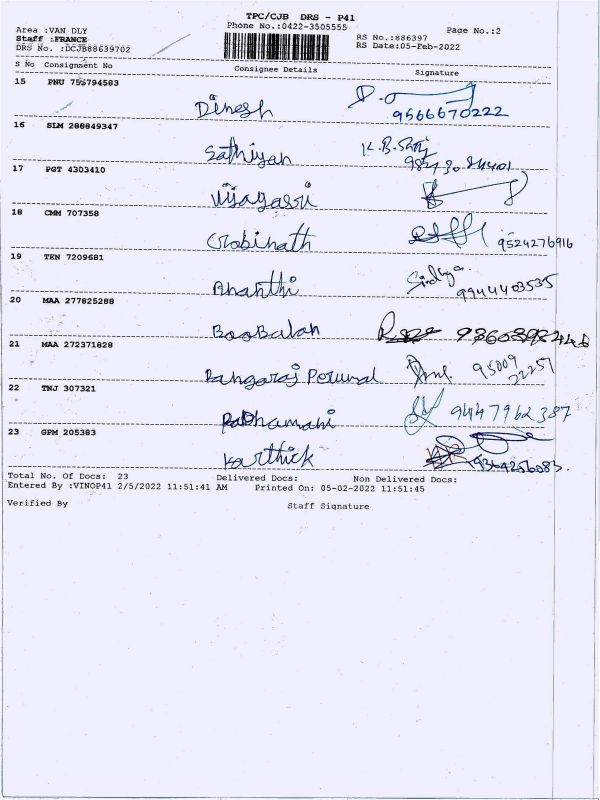 TPC/CJB DRS - P41
Phone No.:0422-3505555
Page No.:2
Area :VAN DLY
Staff :FRANCE
DRS No. :DCJB88639702
RS No.:886397
RS Date:05-Feb-2022
S No Consignment No Consignee Details Signature
15 PNU 755794583 Dinesh 9566670222
16 SLM 288849347 Sathiyan K.B.
17 PGT 4303410 Vijayasri
18 CMM 707358 Gobinath 9524276916
19 TEN 7209681 Ananthi 9944403535
20 MAA 277825288 Boobalan
21 MAA 272371828 Rangaraj Perumal 95009 22257
22 TNJ 307321 Padhamani 9447962387
23 GPM 205383 Karthick 9364256083.
Total No. Of Docs: 23 Delivered Docs: Non Delivered Docs:
Entered By :VINOP41 2/5/2022 11:51:41 AM Printed On: 05-02-2022 11:51:45
Verified By Staff Signature